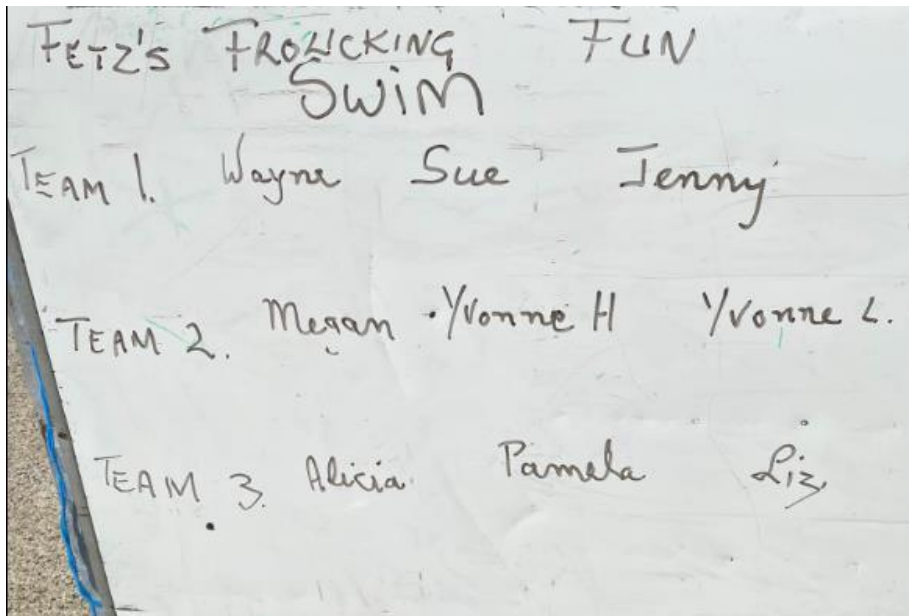 FETZ'S FROLICKING FUN
SWIM
TEAM 1. Wayne Sue Jenny
TEAM 2. Megan · Yvonne H Yvonne L.
TEAM 3. Alicia Pamela Liz